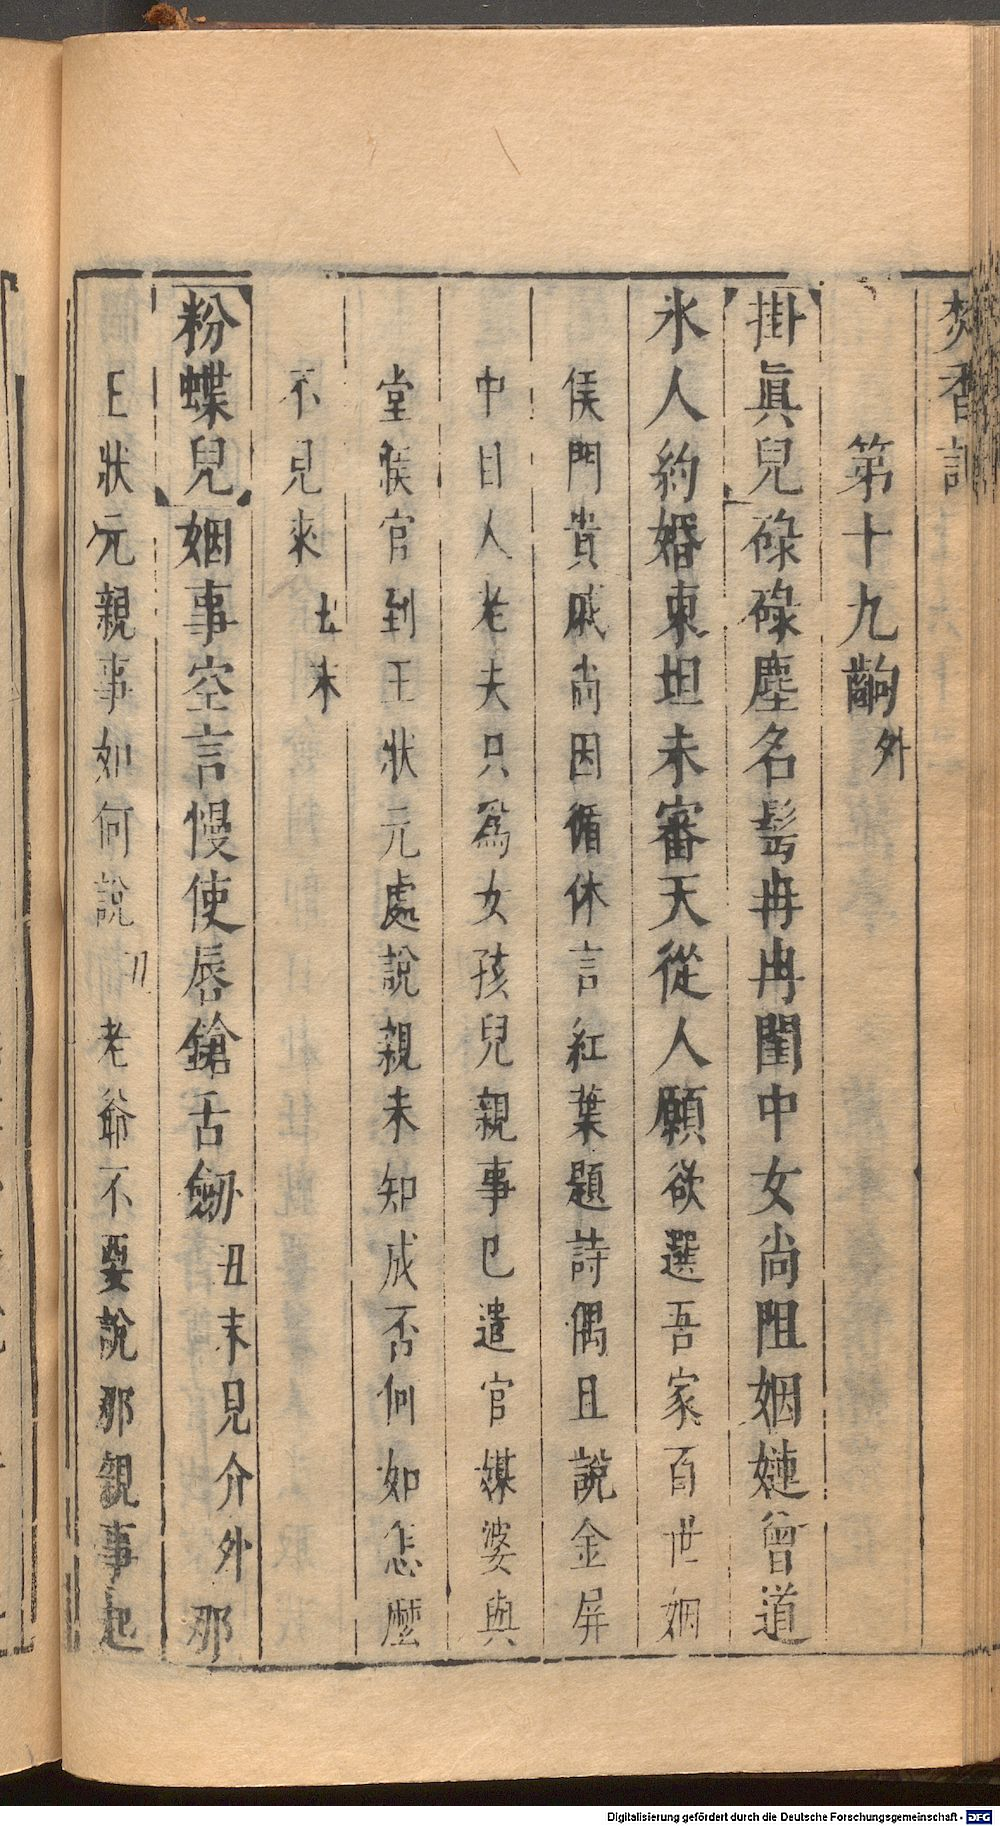 焚香記
第十九齣外
掛眞兒碌碌塵名髩冉冉閨中女尚阻姻嬿曾道
氷人約婚東坦未審天從人願欲選吾家百世姻
侯門貴戚尚因循休言紅葉題詩偶且說金屏
中目人老夫只爲女孩兒親事已遣官媒婆與
堂候官到王狀元處說親未知成否何如怎麽
不見來丑末
粉蝶兒姻事空言慢使唇鎗舌劒丑末見介外那
王狀元親事如何說丑老爺不要說那親事起
Digitalisierung gefördert durch die Deutsche Forschungsgemeinschaft - DFG